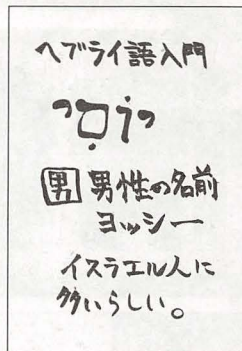 ヘブライ語入門
יוֹסִי
男 男性の名前
ヨッシー
イスラエル人に
多いらしい。